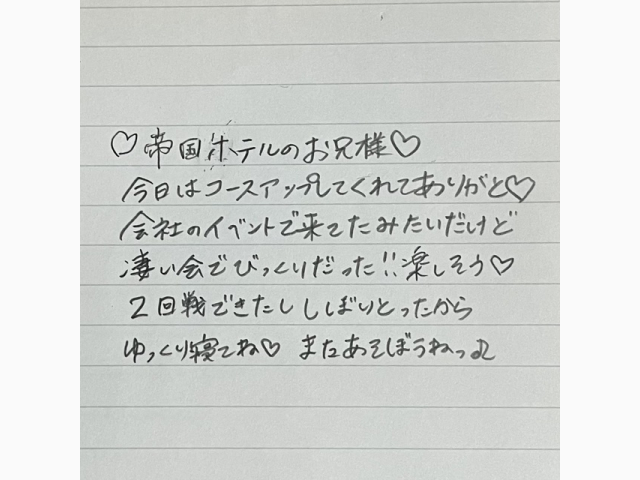 ♡帝国ホテルのお兄様♡
今日はコースアップしてくれてありがと♡
会社のイベントで来てたみたいだけど
凄い会でびっくりだった!!楽しそう♡
2回戦できたし しぼりとったから
ゆっくり寝てね♡ またあそぼうねっ♫